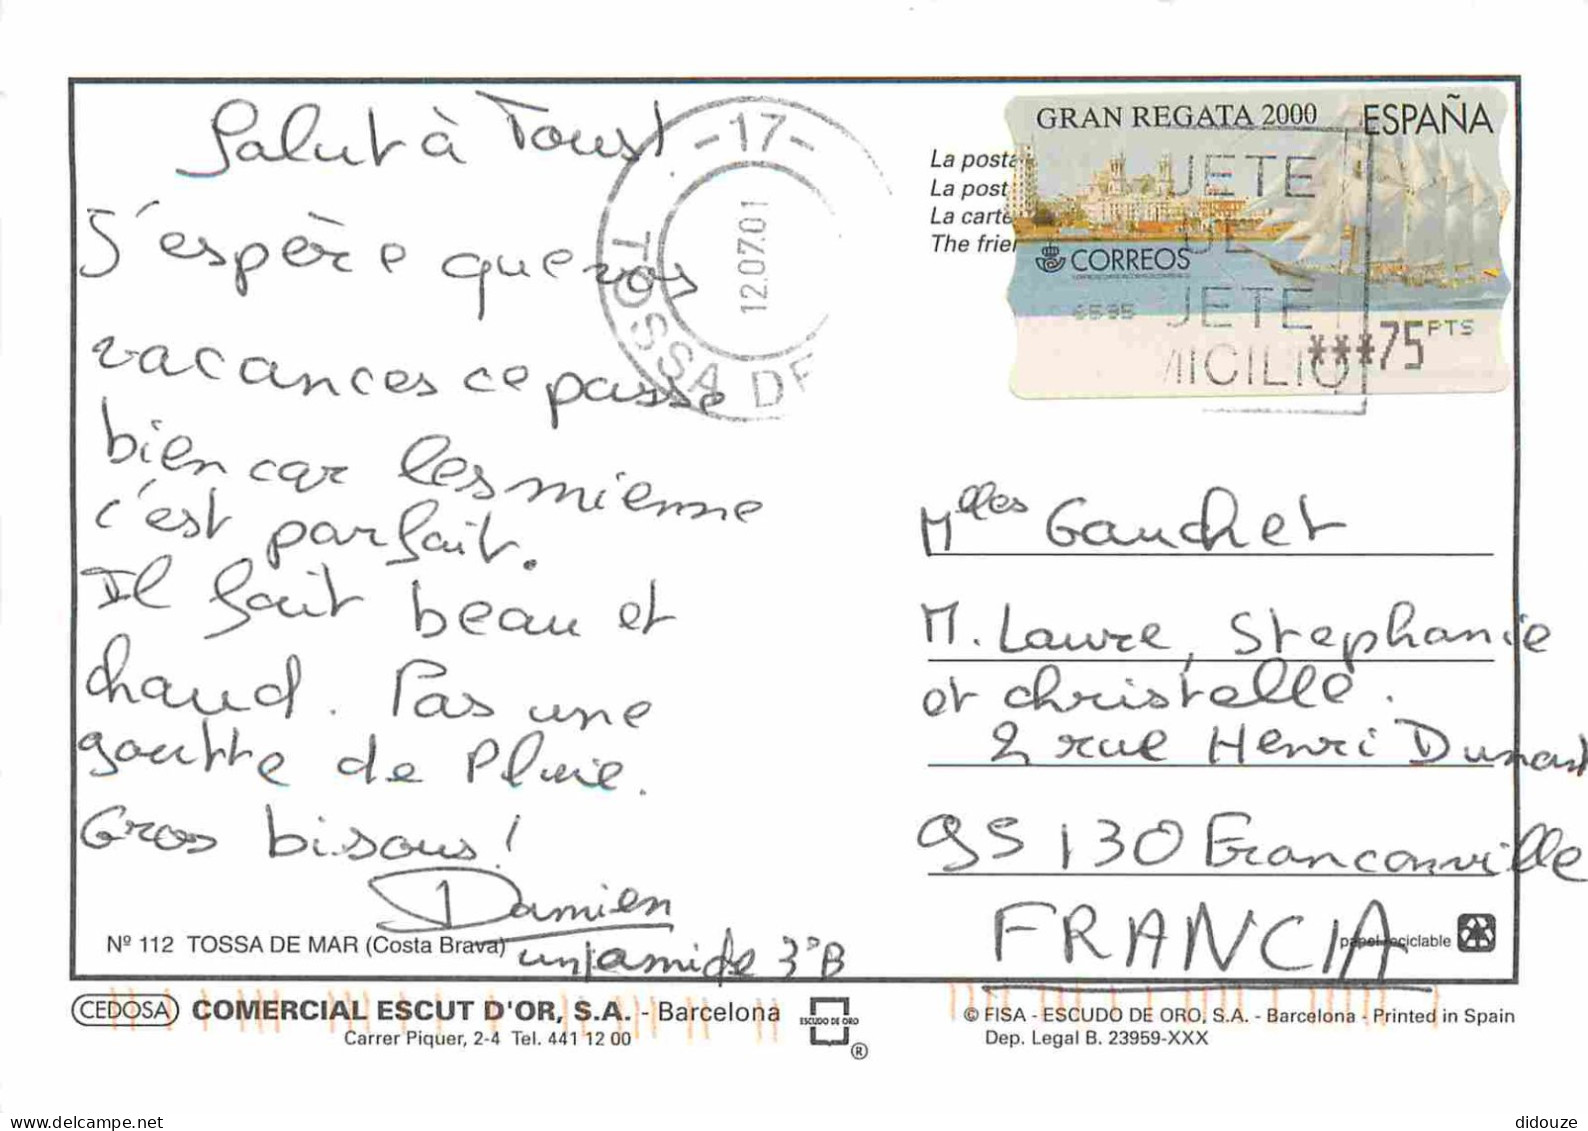 Salut à Tous!
J'espère que vos
vacances ce passe
bien car les mienne
c'est parfait.
Il fait beau et
chaud. Pas une
goutte de Pluie.
Gros bisous!
Damien
3°B
Nº 112 TOSSA DE MAR (Costa Brava)
CEDOSA COMERCIAL ESCUT D'OR, S.A. - Barcelona
Carrer Piquer, 2-4 Tel. 441 12 00
ESCUDO DE ORO
®
-17-
12.07.01
TOSSA DE
La posta
La post
La carte
The frien
GRAN REGATA 2000 ESPAÑA
CORREOS
***75 PTS
JETE
JE
JETE
MICILIO
Mlles Gauchet
M. Laure, Stephanie
et christelle.
2 rue Henri Dunant
95 130 Franconville
FRANCIA
papel reciclable
© FISA - ESCUDO DE ORO, S.A. - Barcelona - Printed in Spain
Dep. Legal B. 23959-XXX
delcampe.net
didouze